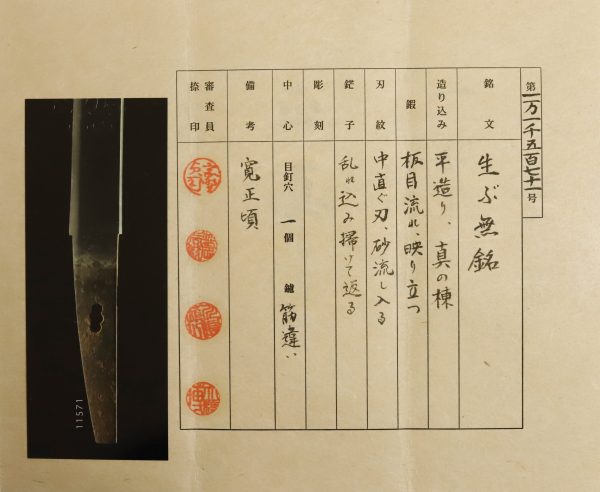 第一万一千五百七十一号
銘文 生ぶ無銘
造り込み 平造り、真の棟
鍜 板目流れ、映り立つ
刃紋 中直ぐ刃、砂流し入る
鋩子 乱れ込み掃けて返る
彫刻
中心 目釘穴 一個 鑢 筋違い
備考 寛正頃
審査員捺印
11571